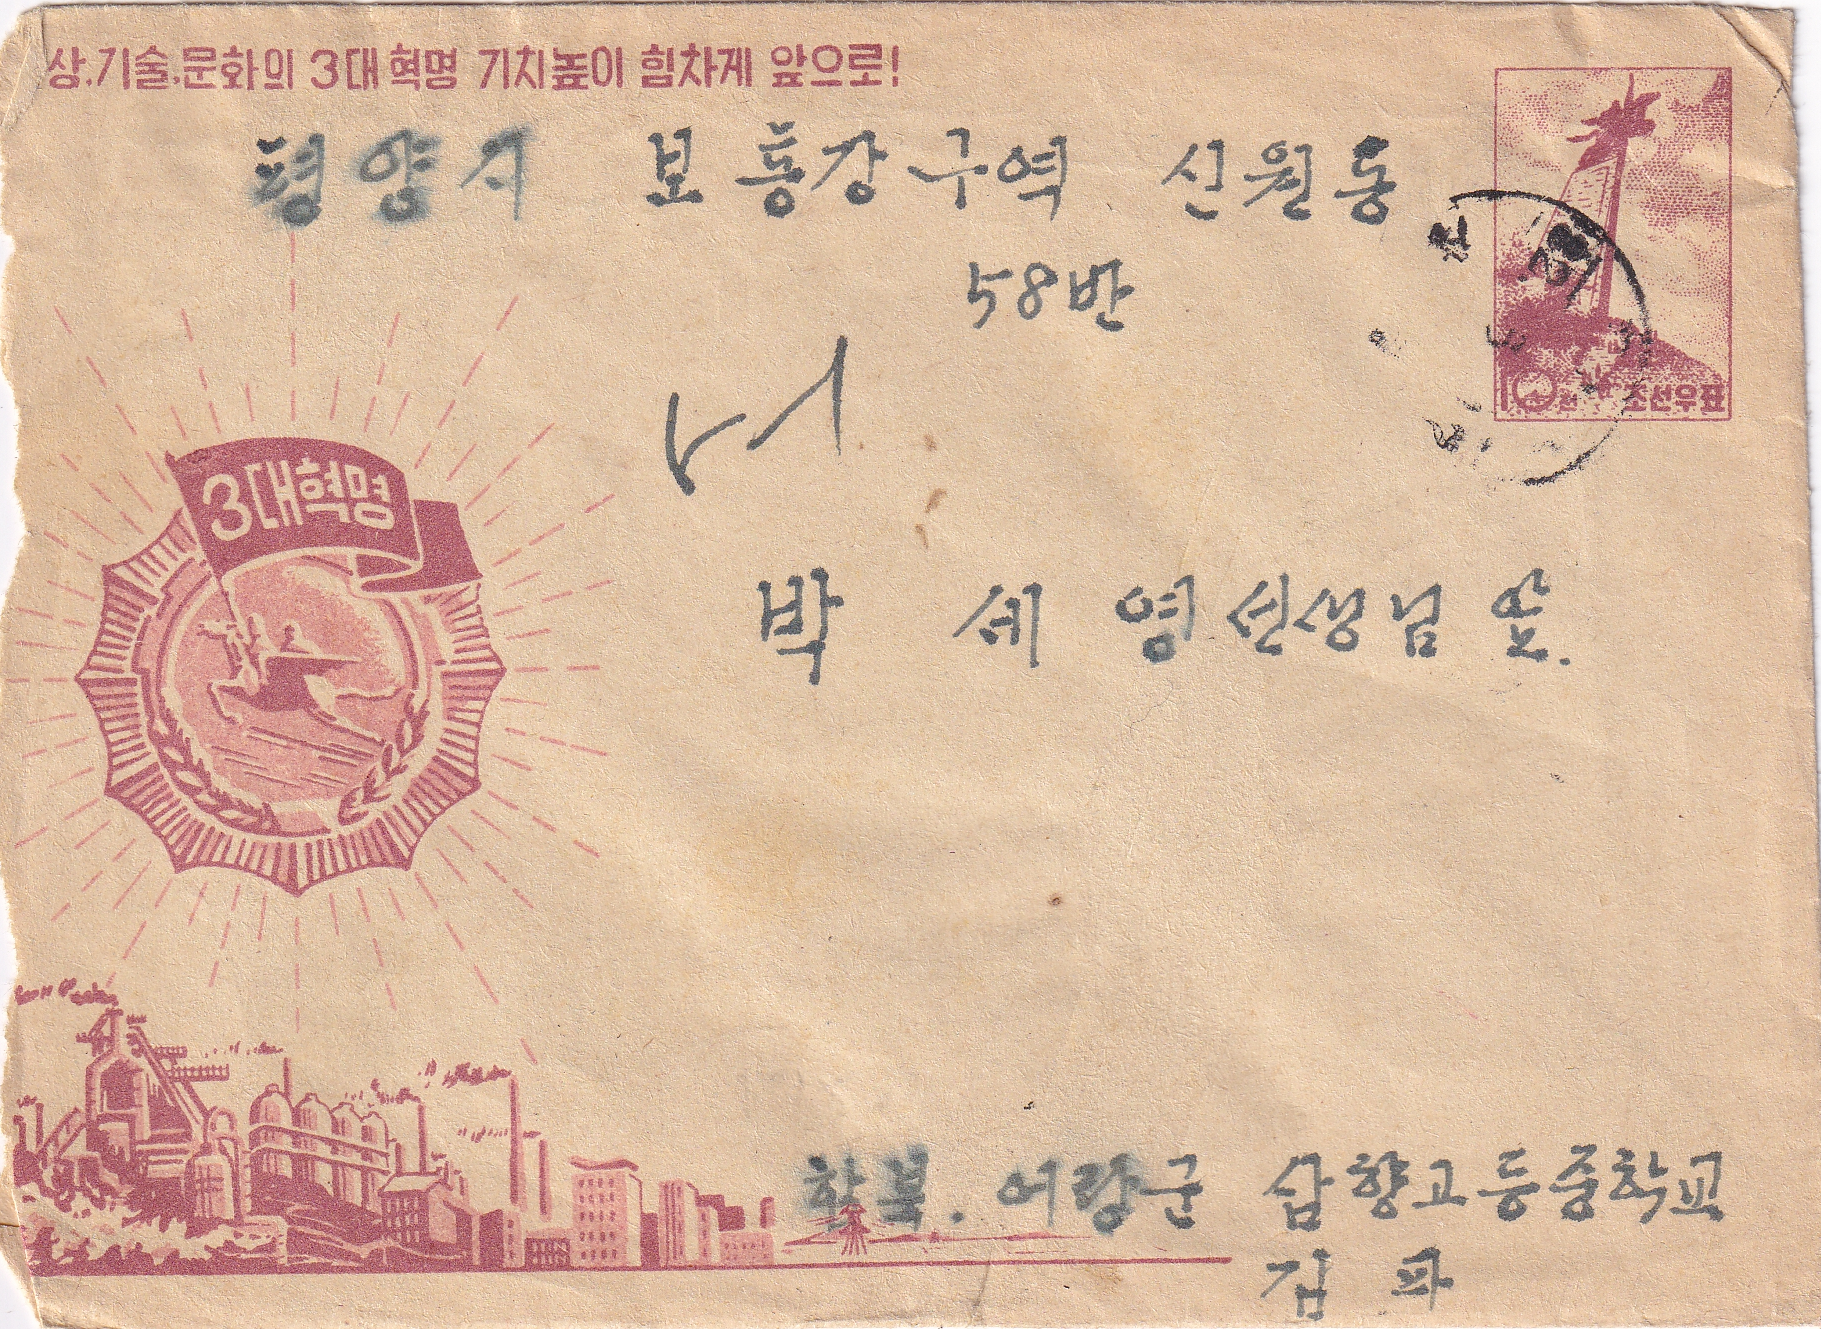 상.기술.문화의 3대혁명 기치높이 힘차게 앞으로!
평양시 보통강구역 신원동
58반
3대혁명
10전 조선우표
박세영선생님 앞.
함북. 어랑군 삼향고등중학교
김 파